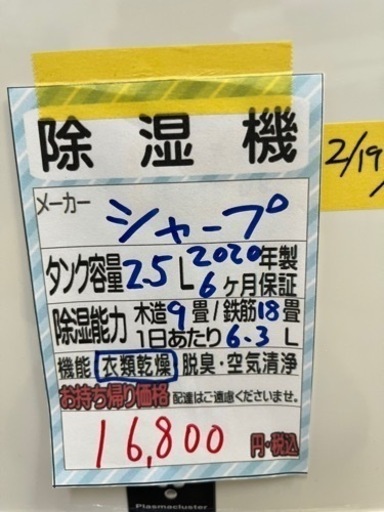 除湿機
2/19
メーカー
シャープ
タンク容量 2.5 L 2020年製
6ヶ月保証
除湿能力 木造9畳/鉄筋18畳
1日あたり 6.3 L
機能 衣類乾燥 脱臭・空気清浄
お持ち帰り価格 配達はご遠慮くださいませ。
16,800 円・税込
Plasmacluster